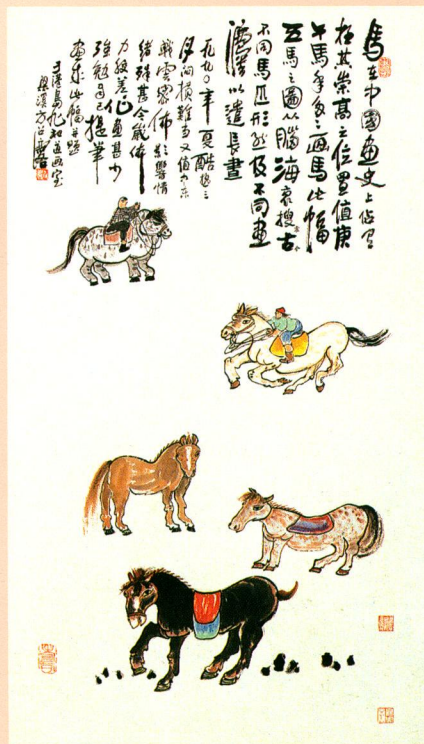 馬在中國畫史上佔有
極其崇高之位置值庚
午馬年多多画馬此幅
五馬之圖以腦海裏搜古
不同馬匹形態及不同畫
法以遣長晝
一九九〇年夏酷熱之
悶損難當又值中東
戰雲密佈影響情
緒殊甚今歲体
力較差作画甚少
強勉自己提筆
畫成此幅并題
于港島 道画室
梁溪方召麐